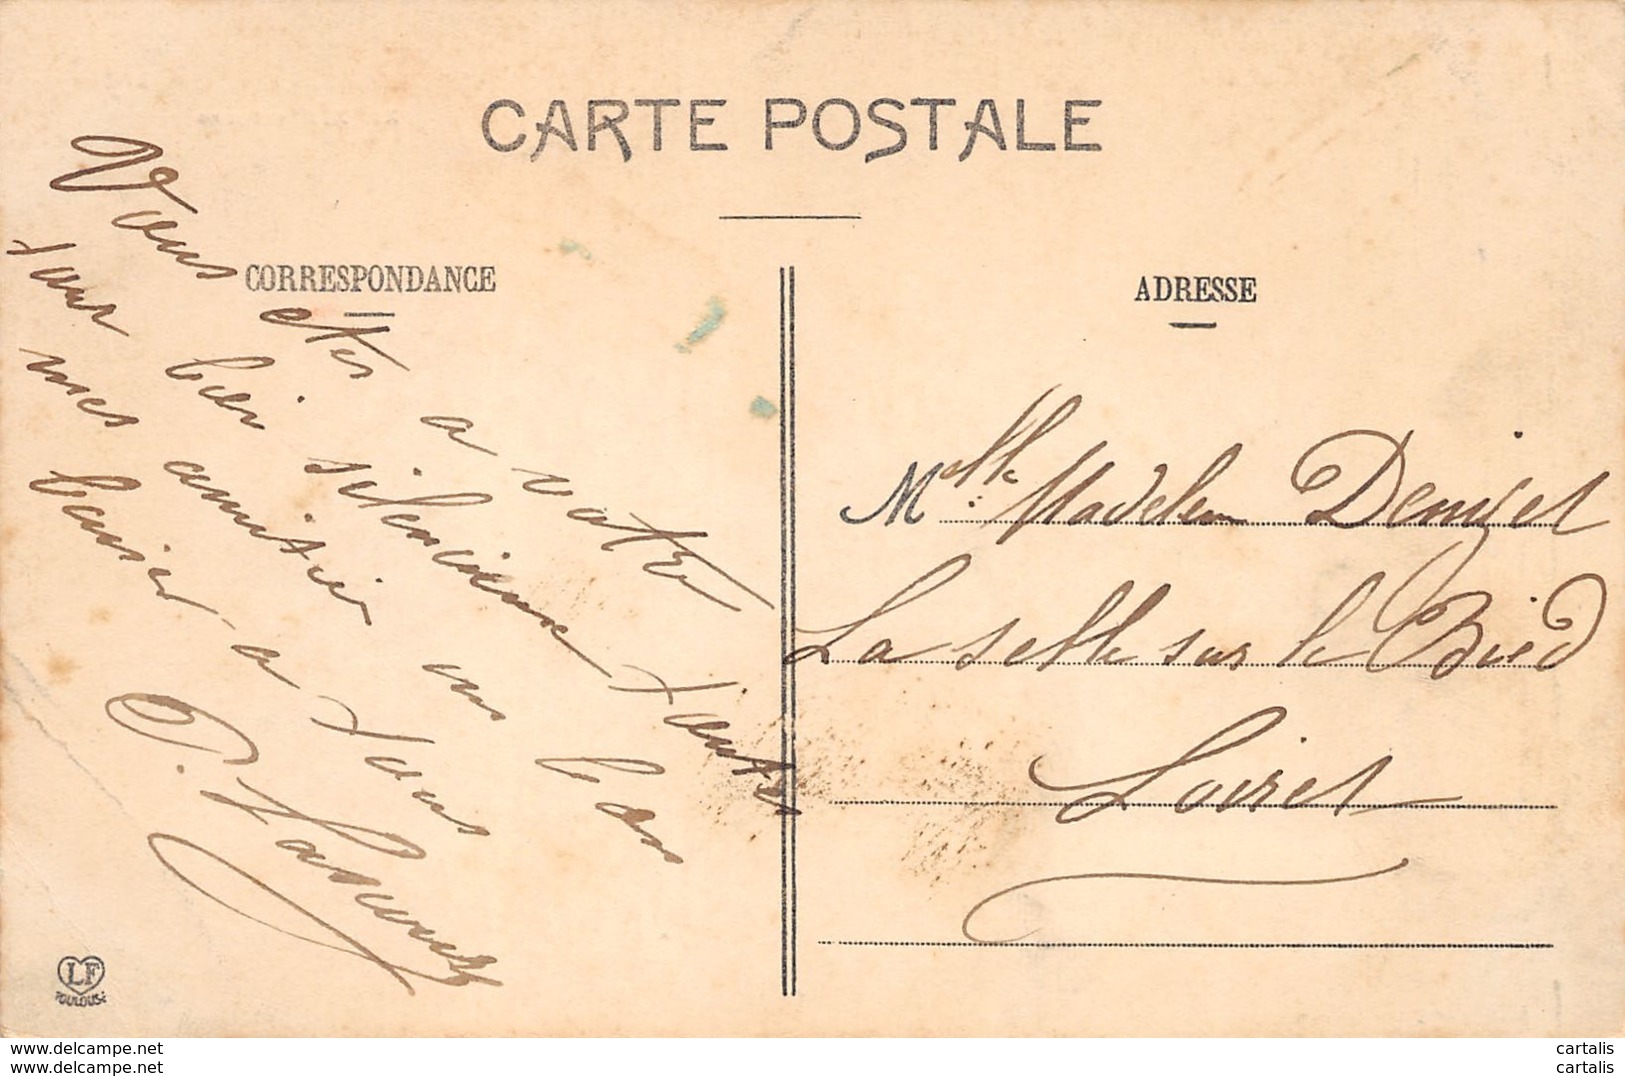 CARTE POSTALE
CORRESPONDANCE
ADRESSE
Vous etes a votre
tour bien silencieuse toutes
mes amitiés un bon
baiser a tous
Melle Madeleine Denizet
La selle sur le Bied
Loiret
LF
TOULOUSE
www.delcampe.net
www.delcampe.net
cartalis
cartalis